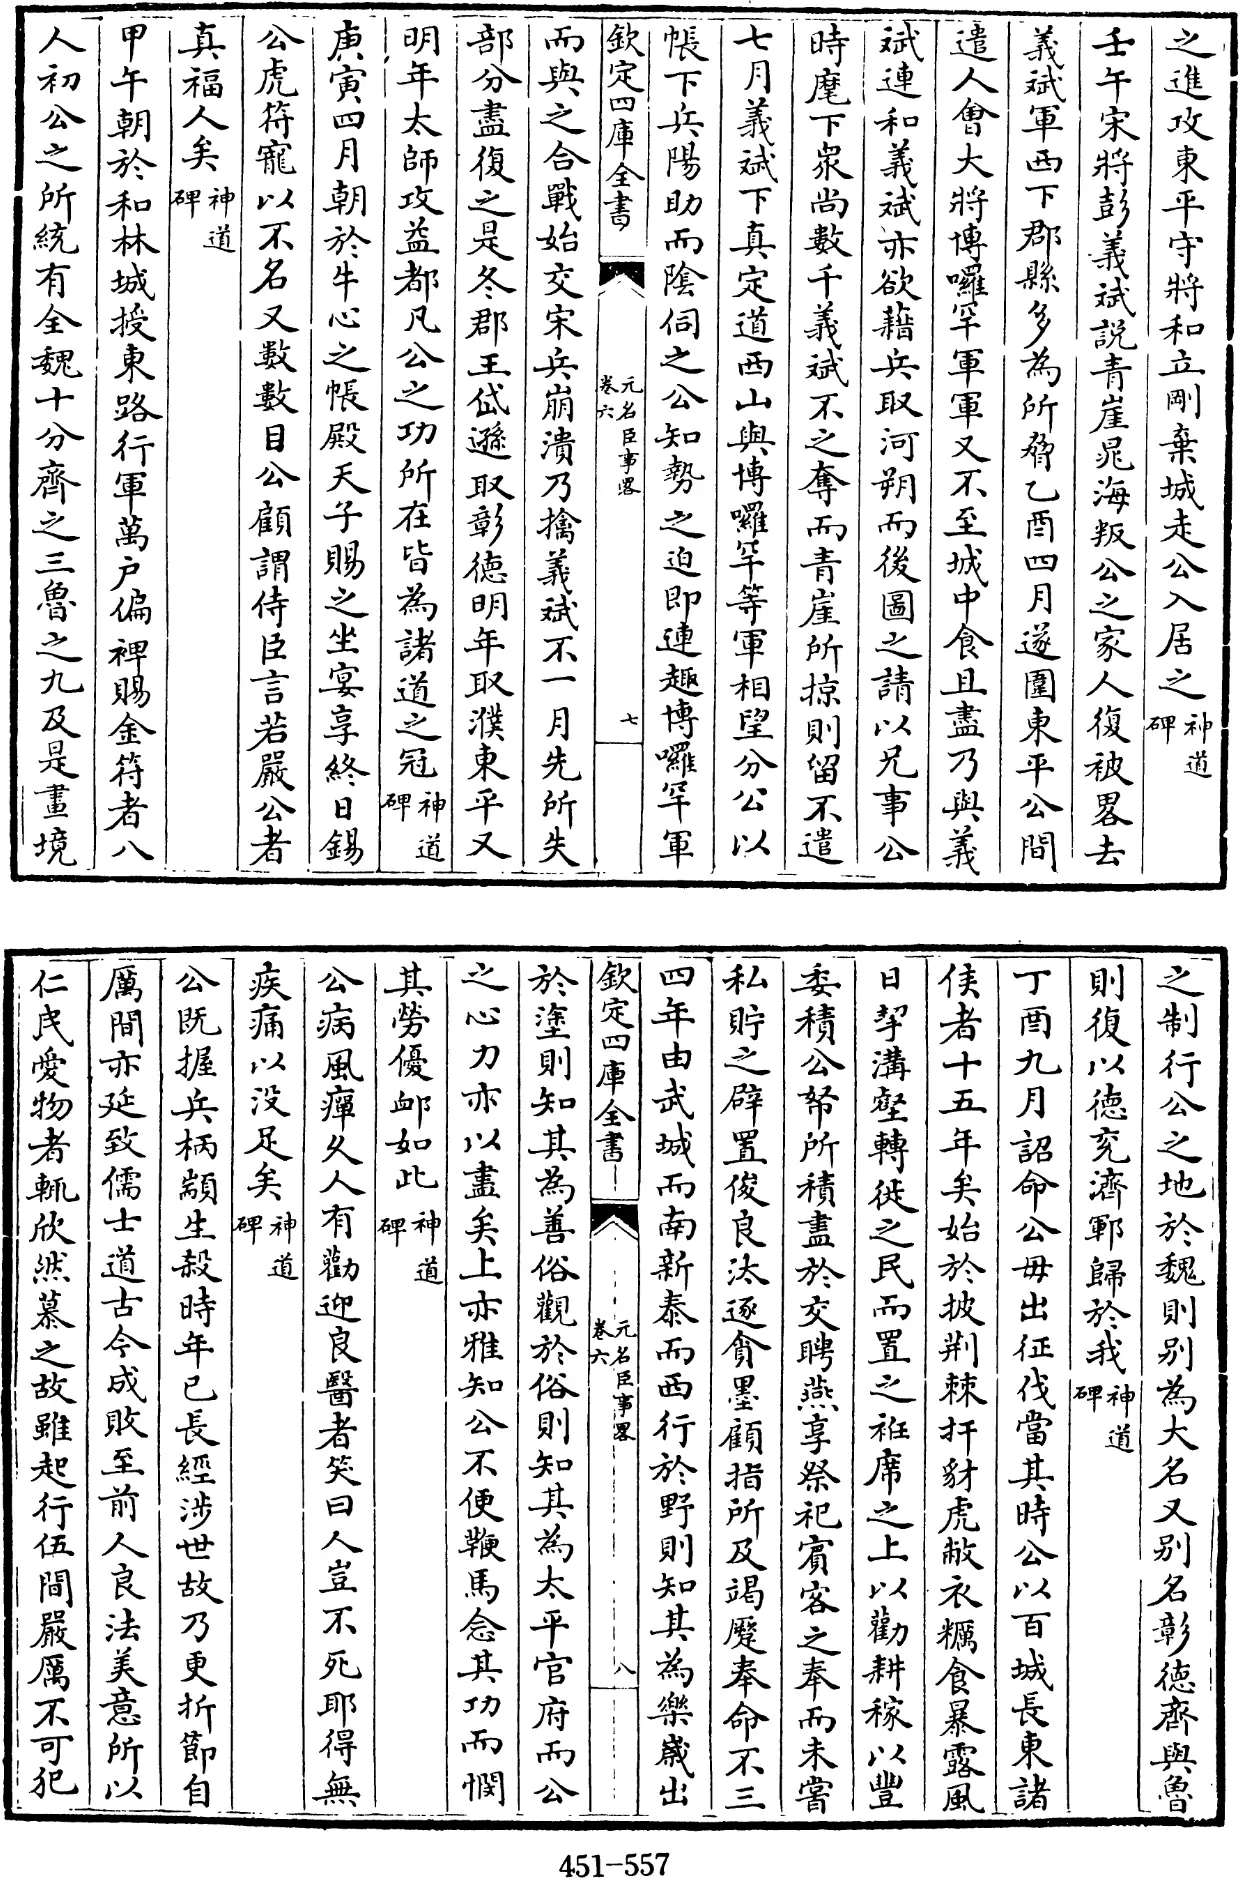 之進攻東平守將和立剛棄城走公入居之神道碑
壬午宋將彭義斌説青崖晁海叛公之家人復被畧去
義斌軍西下郡縣多為所脅乙酉四月遂圍東平公間
遣人會大將博囉罕軍軍又不至城中食且盡乃與義
斌連和義斌亦欲藉兵取河朔而後圖之請以兄事公
時麾下衆尚數千義斌不之奪而青崖所掠則留不遣
七月義斌下真定道西山與博囉罕等軍相望分公以
帳下兵陽助而陰伺之公知勢之迫即連趣博囉罕軍
欽定四庫全書 元名臣事畧卷六 七
而與之合戰始交宋兵崩潰乃擒義斌不一月先所失
部分盡復之是冬郡王岱遜取彰德明年取濮東平又
明年太師攻益都凡公之功所在皆為諸道之冠神道碑
庚寅四月朝於牛心之帳殿天子賜之坐宴享終日錫
公虎符寵以不名又數數目公顧謂侍臣言若嚴公者
真福人矣神道碑
甲午朝於和林城授東路行軍萬户偏裨賜金符者八
人初公之所統有全魏十分齊之三魯之九及是畫境
之制行公之地於魏則别為大名又别名彰德齊與魯
則復以德兖濟鄆歸於我神道碑
丁酉九月詔命公毋出征伐當其時公以百城長東諸
侯者十五年矣始於披荆棘扞豺虎敝衣糲食暴露風
日挈溝壑轉徙之民而置之袵席之上以勸耕稼以豐
委積公帑所積盡於交聘燕享祭祀賓客之奉而未嘗
私貯之辟置俊良汰逐貪墨顧指所及竭蹷奉命不三
四年由武城而南新泰而西行於野則知其為樂嵗出
欽定四庫全書 元名臣事畧卷六 八
於塗則知其為善俗觀於俗則知其為太平官府而公
之心力亦以盡矣上亦雅知公不便鞭馬念其功而憫
其勞優䘏如此神道碑
公病風痺久人有勸迎良醫者笑曰人豈不死耶得無
疾痛以没足矣神道碑
公既握兵柄顓生殺時年已長經涉世故乃更折節自
厲間亦延致儒士道古今成敗至前人良法美意所以
仁民愛物者輒欣然慕之故雖起行伍間嚴厲不可犯
451-557